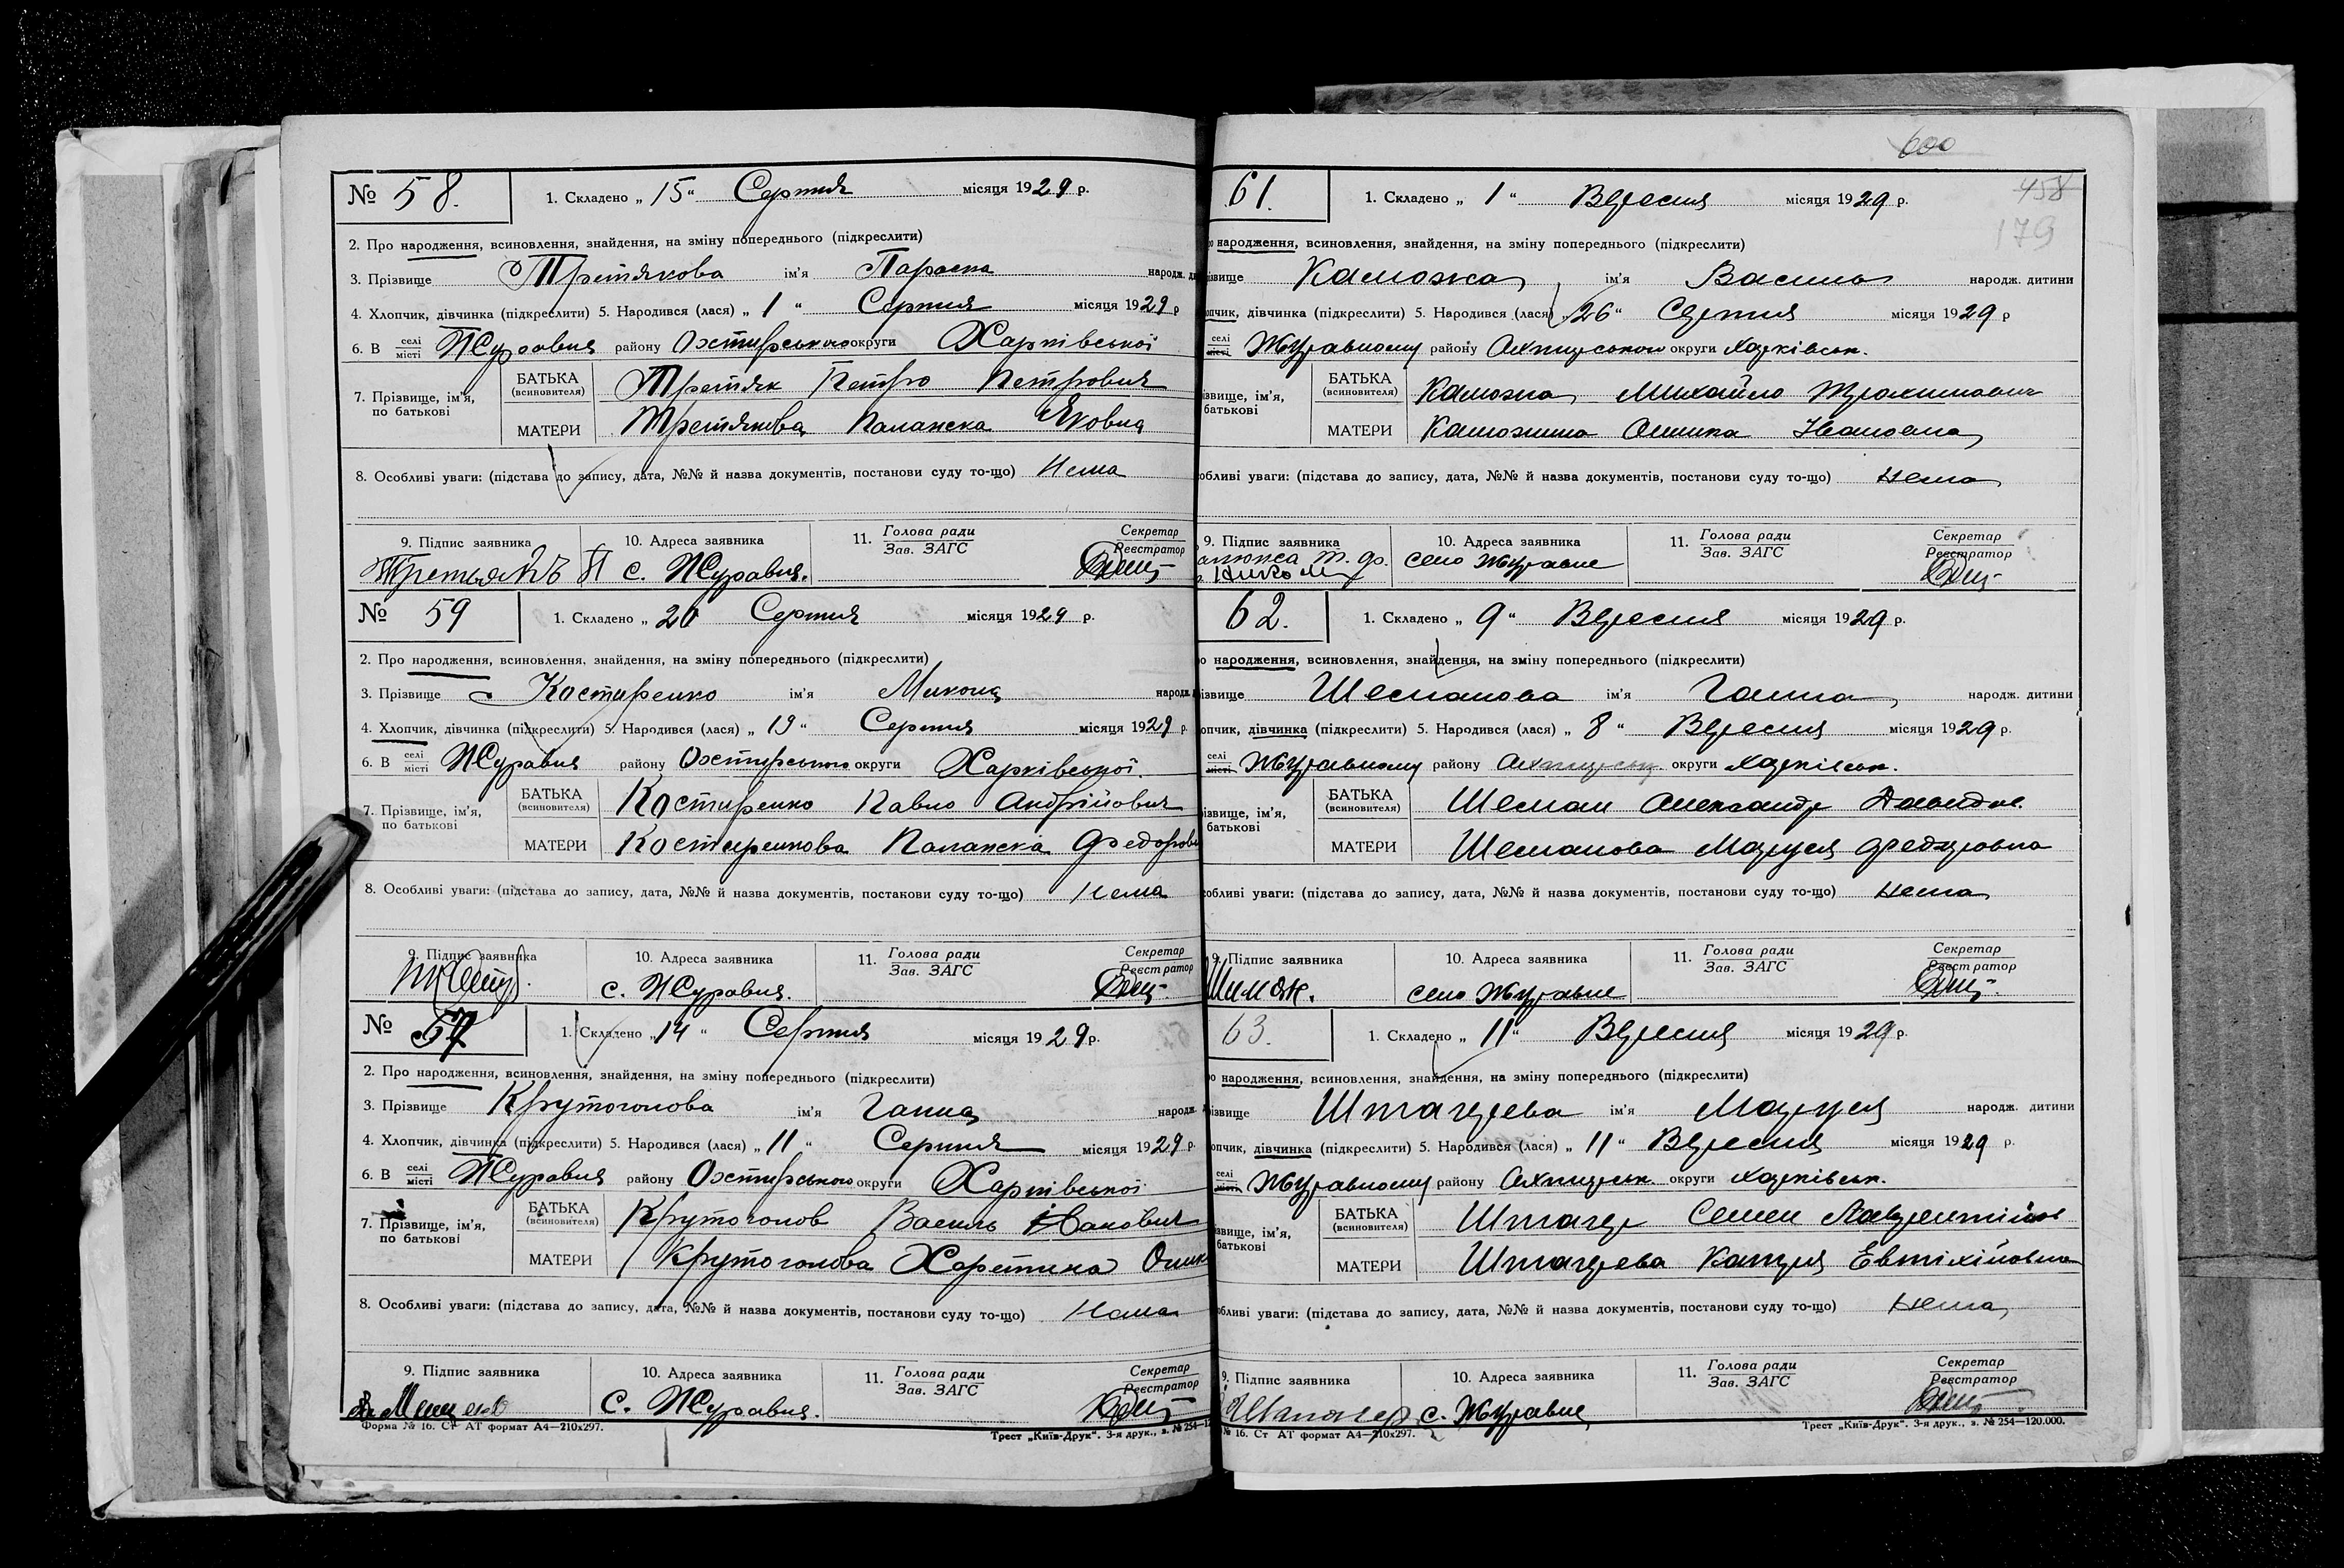 № 58. 1. Складено „ 15 “ Серпня місяця 1929 р.
2. Про народження, всиновлення, знайдення, на зміну попереднього (підкреслити)
3. Прізвище Третякова ім'я Параска народж.
4. Хлопчик, дівчинка (підкреслити) 5. Народився (лася) „ 1 “ Серпня місяця 1929 р
6. В селі місті Журавня району Охтирського округи Харківської
7. Прізвище, ім'я, по батькові БАТЬКА (всиновителя) Третяк Петро Петрович
МАТЕРИ Третякова Палажка Яковна
8. Особливі уваги: (підстава до запису, дата, №№ й назва документів, постанови суду то-що) Нема
9. Підпис заявника 10. Адреса заявника 11. Голова ради Зав. ЗАГС Секретар Реєстратор
Третьякъ П с. Журавня.
№ 59 1. Складено „ 20 Серпня місяця 1929 р.
2. Про народження, всиновлення, знайдення, на зміну попереднього (підкреслити)
3. Прізвище Костиренко ім'я Микола народж.
4. Хлопчик, дівчинка (підкреслити) 5. Народився (лася) „ 19 “ Серпня місяця 1929 р.
6. В селі місті Журавня району Охтирського округи Харківської.
7. Прізвище, ім'я, по батькові БАТЬКА (всиновителя) Костиренко Павло Андрійович
МАТЕРИ Костиренкова Палажка Федоров
8. Особливі уваги: (підстава до запису, дата, №№ й назва документів, постанови суду то-що) Нема
9. Підпис заявника 10. Адреса заявника 11. Голова ради Зав. ЗАГС Секретар Реєстратор
с. Журавня.
№ 57 1. Складено „ 14 “ Серпня місяця 1929 р.
2. Про народження, всиновлення, знайдення, на зміну попереднього (підкреслити)
3. Прізвище Крутоголова ім'я Ганна народж.
4. Хлопчик, дівчинка (підкреслити) 5. Народився (лася) „ 11 “ Серпня місяця 1929 р
6. В селі місті Журавня району Охтирського округи Харківської
7. Прізвище, ім'я, по батькові БАТЬКА (всиновителя) Крутоголов Василь Іванович
МАТЕРИ Крутоголова Харетина
8. Особливі уваги: (підстава до запису, дата, №№ й назва документів, постанови суду то-що) Нема
9. Підпис заявника 10. Адреса заявника 11. Голова ради Зав. ЗАГС Секретар Реєстратор
с. Журавня.
Форма № 16. Ст АТ формат А4—210х297.
Трест „Київ-Друк“. 3-я друк., з. № 254—12
600
458
179
61. 1. Складено „ 1 “ Вересня місяця 1929 р.
народження, всиновлення, знайдення, на зміну попереднього (підкреслити)
ізвище Каложка ім'я Василь народж. дитини
опчик, дівчинка (підкреслити) 5. Народився (лася) „ 26 “ Серпня місяця 1929 р
селі місті Журавному району Охтирському округи Харківськ.
ізвище, ім'я, батькові БАТЬКА (всиновителя) Каложка Михайло Трохимович
МАТЕРИ Каложина Івановна
обливі уваги: (підстава до запису, дата, №№ й назва документів, постанови суду то-що) Нема
9. Підпис заявника 10. Адреса заявника 11. Голова ради Зав. ЗАГС Секретар Реєстратор
село Журавне
62. 1. Складено „ 9 “ Вересня місяця 1929 р.
о народження, всиновлення, знайдення, на зміну попереднього (підкреслити)
ізвище Шеманова ім'я Ганна народж. дитини
опчик, дівчинка (підкреслити) 5. Народився (лася) „ 8 “ Вересня місяця 1929 р.
селі місті Журавному району Охтирськ. округи Харківськ.
ізвище, ім'я, батькові БАТЬКА (всиновителя) Шеман Олександр Давидов.
МАТЕРИ Шеманова Маруся Федоровна
обливі уваги: (підстава до запису, дата, №№ й назва документів, постанови суду то-що) Нема
9. Підпис заявника 10. Адреса заявника 11. Голова ради Зав. ЗАГС Секретар Реєстратор
село Журавне
63. 1. Складено „ 11 “ Вересня місяця 1929 р.
о народження, всиновлення, знайдення, на зміну попереднього (підкреслити)
ізвище Штагерева ім'я Маруся народж. дитини
опчик, дівчинка (підкреслити) 5. Народився (лася) „ 11 “ Вересня місяця 1929 р.
селі місті Журавному району Охтирськ. округи Харківськ.
звище, ім'я, батькові БАТЬКА (всиновителя) Штагер Семен Лаврентійов
МАТЕРИ Штагерева Катря Евтіхійовна
бливі уваги: (підстава до запису, дата, №№ й назва документів, постанови суду то-що) Нема
9. Підпис заявника 10. Адреса заявника 11. Голова ради Зав. ЗАГС Секретар Реєстратор
Штагер с. Журавне
№ 16. Ст АТ формат А4—210х297.
Трест „Київ-Друк“. 3-я друк., з. № 254—120.000.